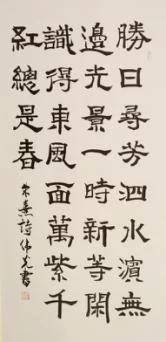 勝日尋芳泗水濱無
邊光景一時新等閑
識得東風面萬紫千
紅總是春
朱熹詩偉光書